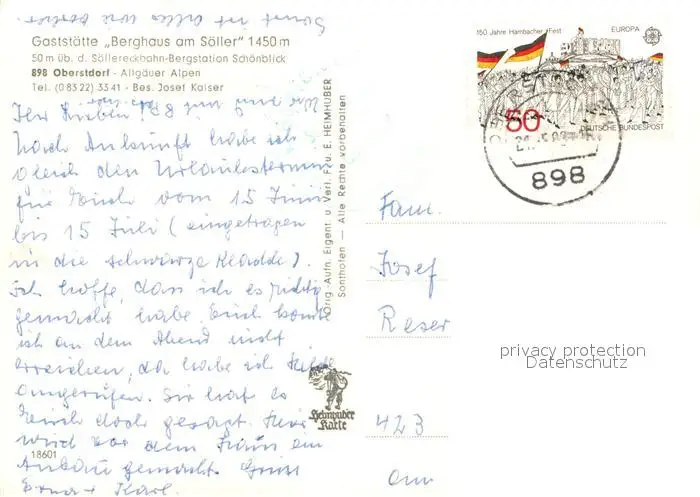 Sonst ist alles wie bisher.
Gaststätte „Berghaus am Söller" 1450 m
50 m üb. d. Söllereckbahn-Bergstation Schönblick
898 Oberstdorf - Allgäuer Alpen
Tel. (0 83 22) 33 41 - Bes. Josef Kaiser
Ihr Lieben
Nach Ankunft habe ich
gleich den Urlaubstermin
für Euch vom 15 Juni
bis 15 Juli (eingetragen
in die schwarze Kladde).
Ich hoffe, dass ich es richtig
gemacht habe. Euch konnte
ich an dem Abend nicht
erreichen, da habe ich
angerufen. Sie hat es
Euch doch gesagt. Hier
wird vor dem Haus ein
Anbau gemacht. Gruss
Erna + Karl.
18601
Orig.-Aufn. Eigent u. Verl. Fau. E. HEIMHUBER
Sonthofen — Alle Rechte vorbehalten
Heimhuber
Karte
150 Jahre Hambacher Fest
EUROPA
50
DEUTSCHE BUNDESPOST
898
Fam.
Josef
Reser
423
privacy protection
Datenschutz